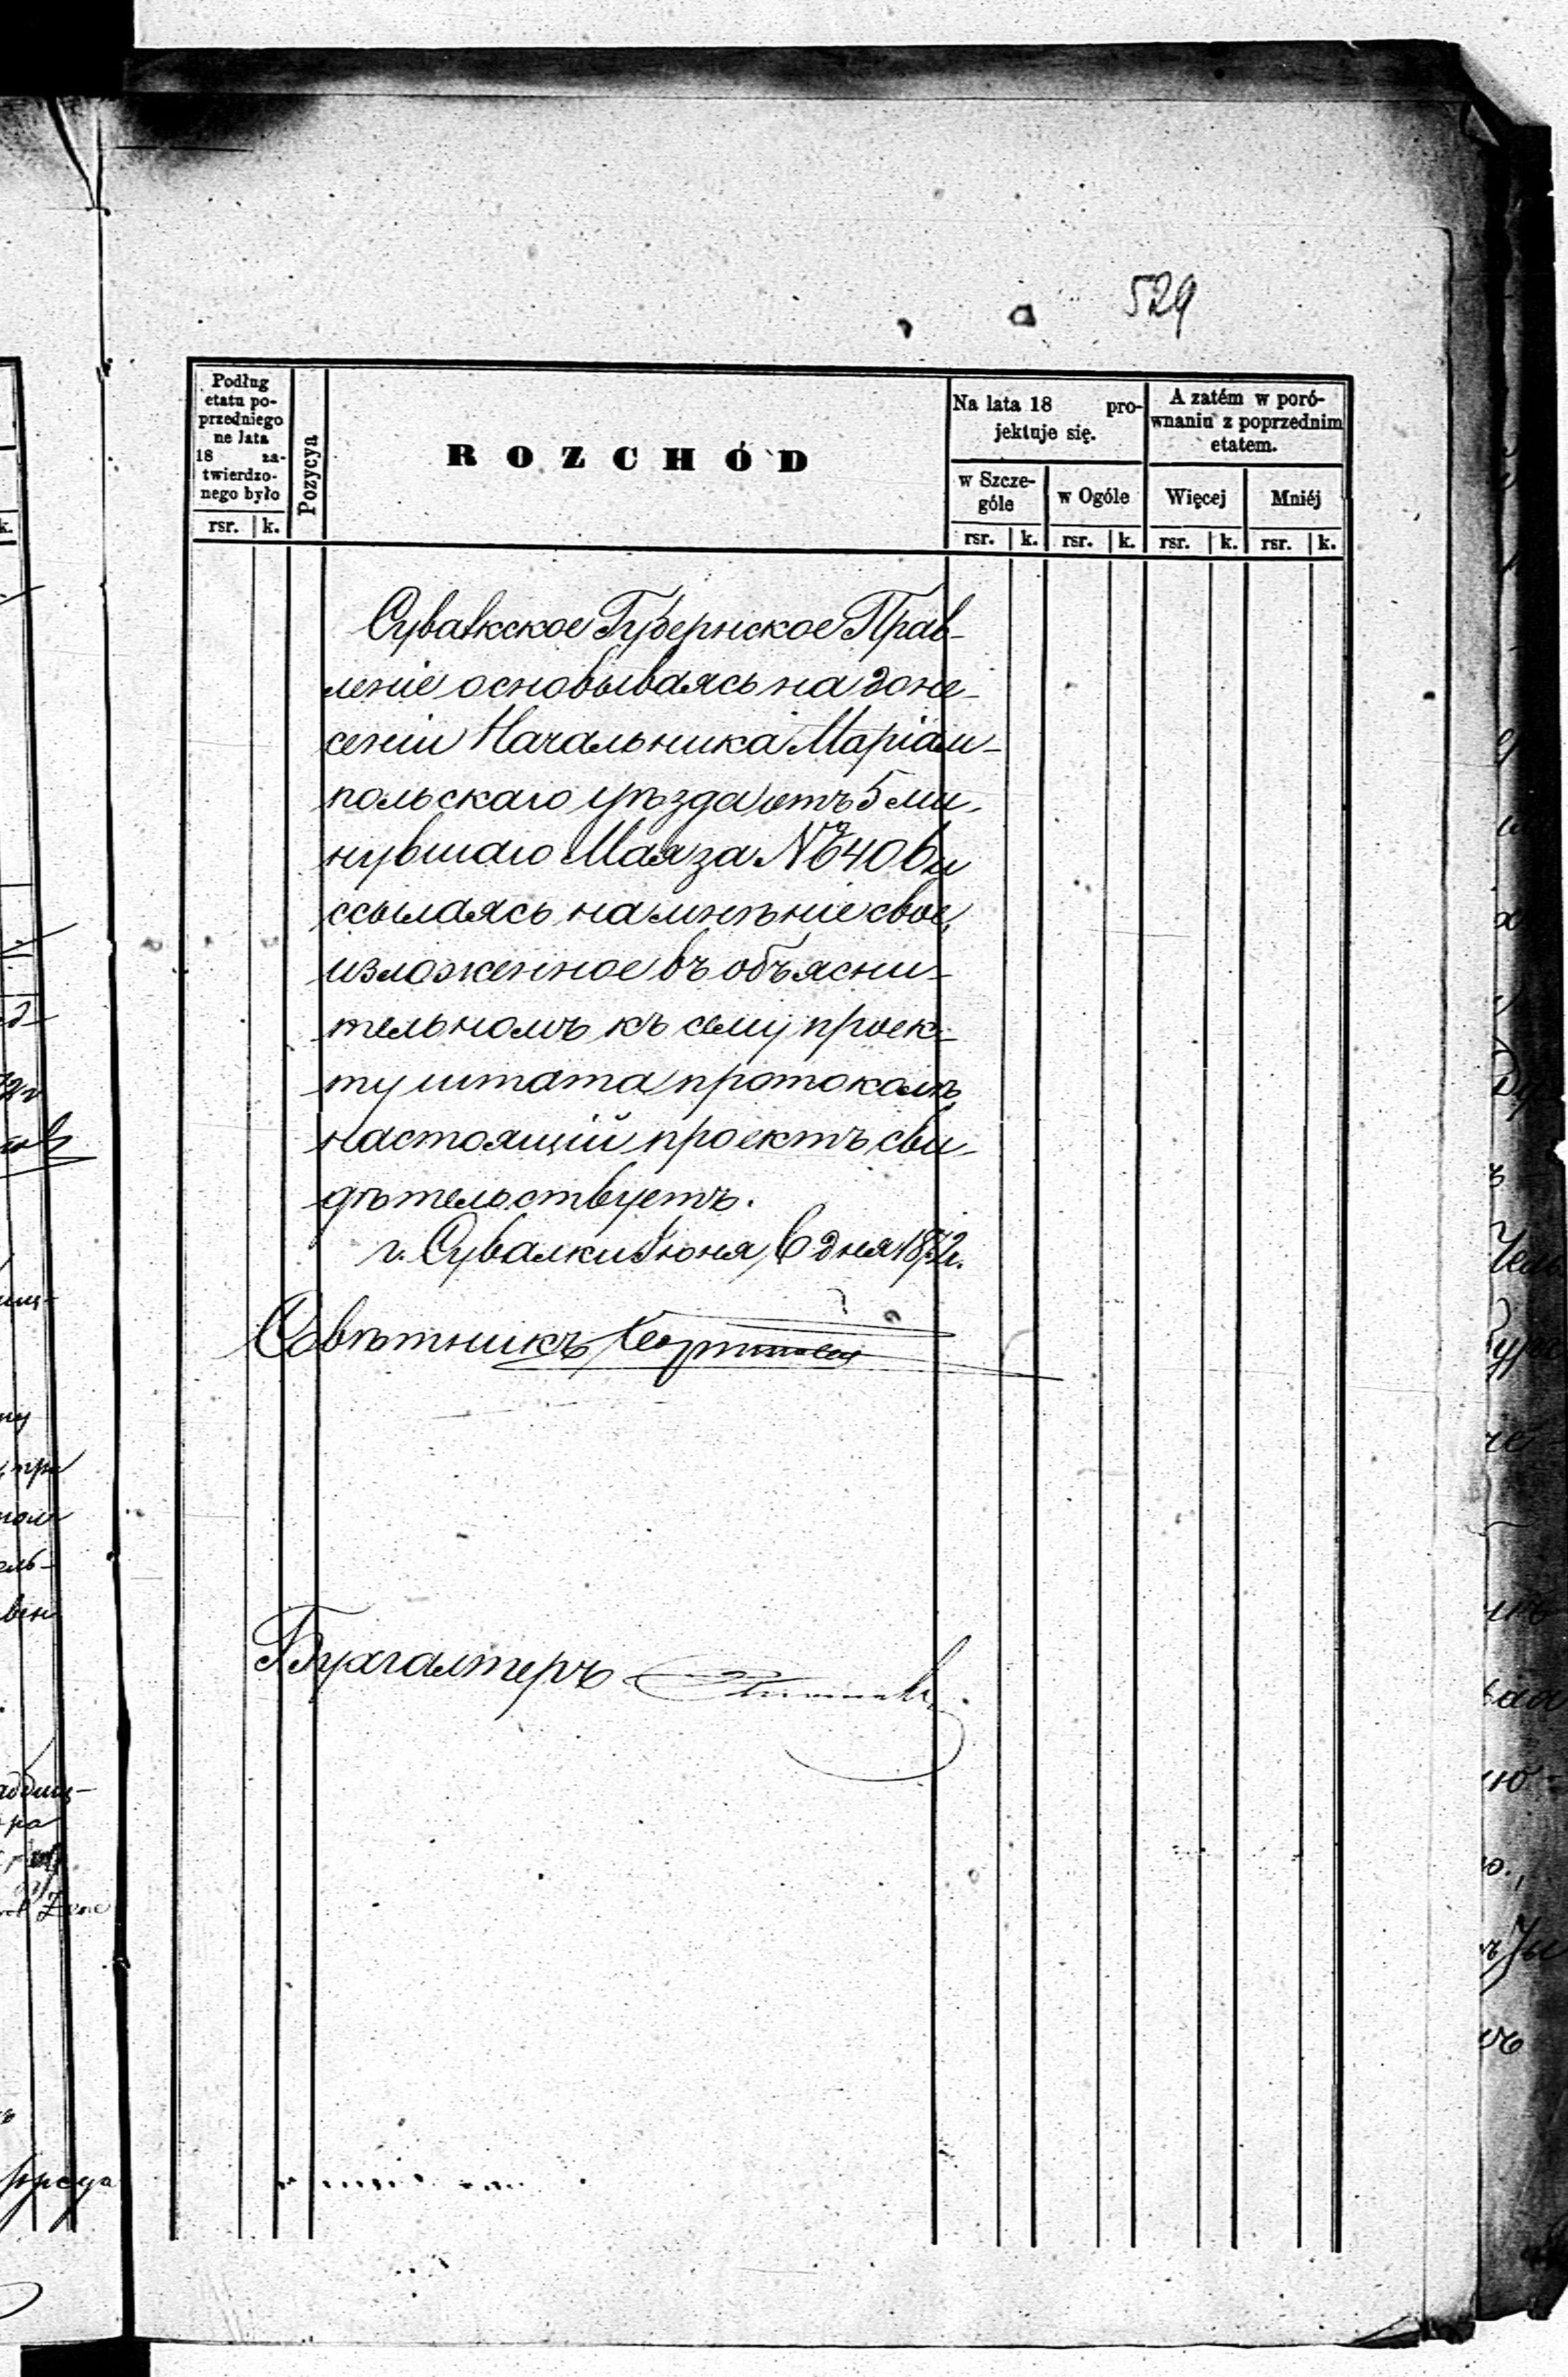 529
Podług
etatu po-
przedniego
ne lata
18 za-
twierdzo-
nego było
rsr. k.
Pozycya
ROZCHÓD
Na lata 18 pro-
jektuje się.
w Szcze-
góle
rsr. k.
w Ogóle
rsr. k.
A zatém w poró-
wnaniu z poprzednim
etatem.
Więcej
rsr. k.
Mniéj
rsr. k.
Сувалкское Губернское Прав-
леніе основываясь на доне-
сеніи Начальника Маріам-
польскаго уѣзда отъ 5 ми-
нувшаго Мая за №
ссылаясь на мнѣніе свое,
изложенное въ объясни-
тельномъ къ сему проек-
ту штата протоколѣ,
настоящій проектъ сви-
дѣтельствуетъ.
г. Сувалки Іюня 6 дня 1872г.
Совѣтникъ
Бухгалтеръ